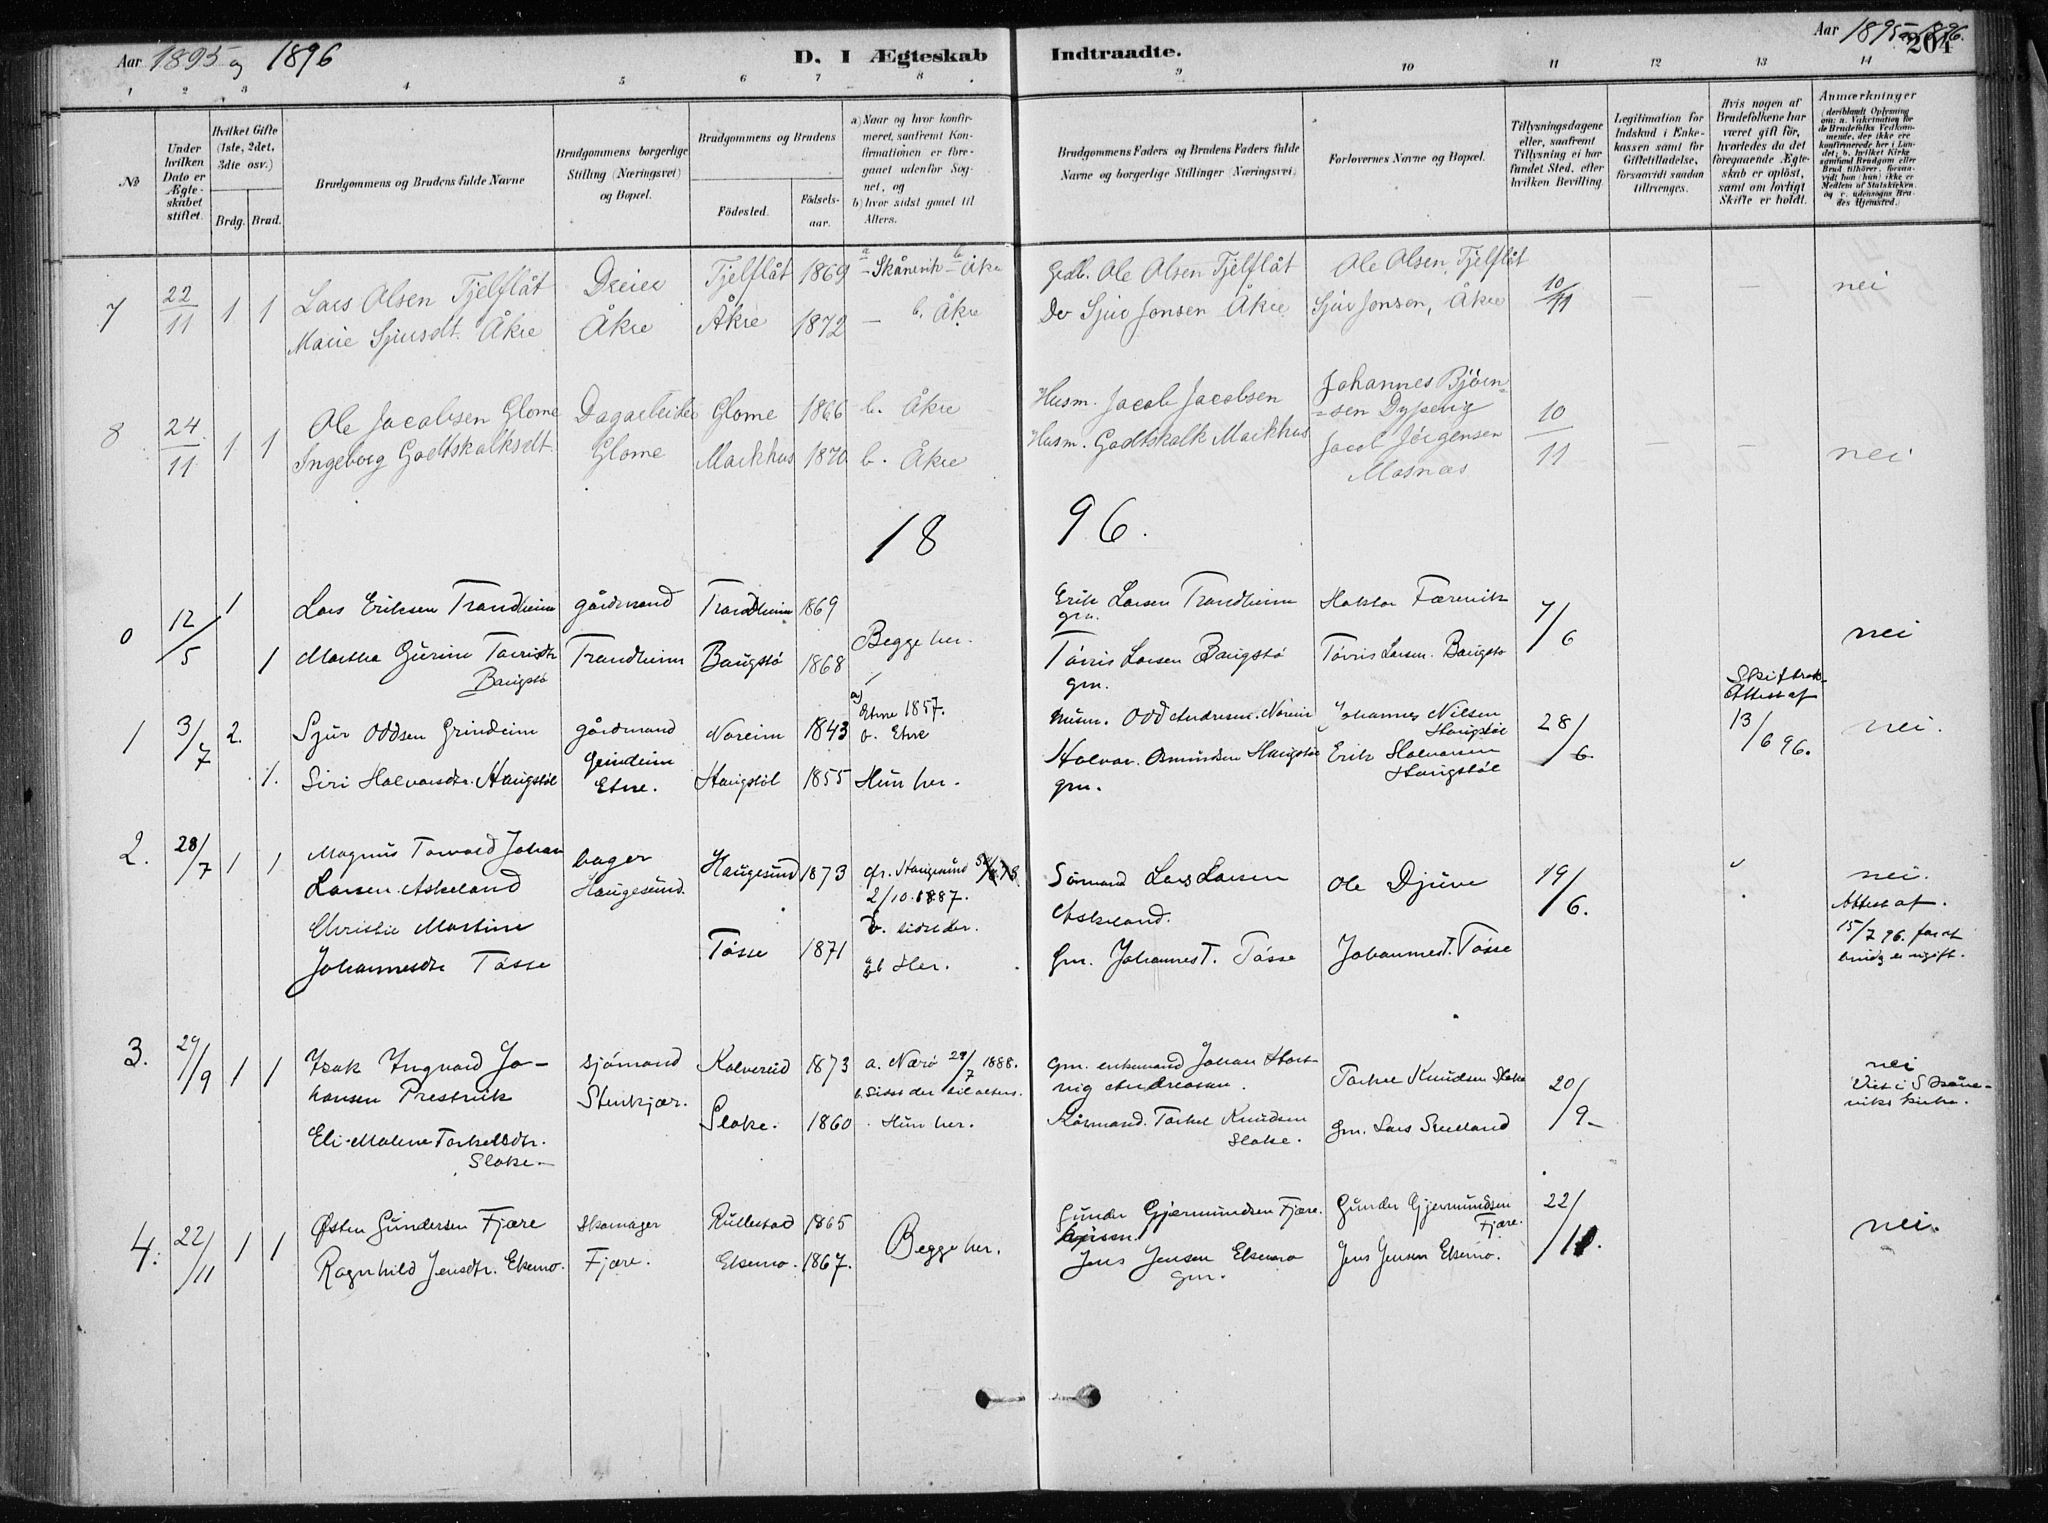 Aar 1895 og 1896
D. I Ægteskab Indtraadte.
Aar 1895 og 1896.
204
1 2 3 4 5 6 7 8 9 10 11 12 13 14
No
Under hvilken Dato er Ægteskabet stiftet.
Hvilket Gifte (1ste, 2det, 3die osv.)
Brdg. Brud.
Brudgommens og Brudens fulde Navne
Brudgommens borgerlige Stilling (Næringsvei) og Bopæl.
Brudgommens og Brudens
Fødested. Fødselsaar.
a) Naar og hvor konfirmeret, saafremt Konfirmationen er foregaaet udenfor Sognet, og
b) hvor sidst gaaet til Alters.
Brudgommens Faders og Brudens Faders fulde Navne og borgerlige Stillinger (Næringsvei)
Forlovernes Navne og Bopæl.
Tillysningsdagene eller, saafremt Tillysning ei har fundet Sted, efter hvilken Bevilling.
Legitimation for Indskud i Enkekassen samt for Giftetilladelse, forsaavidt saadan tiltrænges.
Hvis nogen af Brudefolkene har været gift før, hvorledes da det foregaaende Ægteskab er opløst, samt om lovligt Skifte er holdt.
Anmærkninger
(deriblandt Oplysning om: a. Vakcination for de Brudefolks Vedkommende, der ikke ere konfirmerede her i Landet; b. hvilket Kirkesamfund Brudgom eller Brud tilhører, forsaavidt han (hun) ikke er Medlem af Statskirken, og c. udensogns Brudes Hjemsted.)
7 22/11 1 1 Lars Olsen Tjelflåt Dreier Tjelflåt 1869 a – Skånevik – b Åkre Gdb. Ole Olsen Tjelflåt Ole Olsen, Tjelflåt 10/11 – – nei
Marie Sjursdt. Åkre Åkre Åkre 1872 – b. Åkre Do Sjur Jonsen Åkre Sjur Jonsen, Åkre
8 24/11 1 1 Ole Jacobsen Glome Dagarbeider Glome 1866 b. Åkre Husm. Jacob Jacobsen Johannes Bjørnsen Dypevig 10/11 – – nei
Ingeborg Godtskalksdt. Glome Markhus 1870 b. Åkre Husm. Godtskalk Markhus Jacob Jørgensen Mosnæs
18 96.
0 12/5 1 Lars Eriksen Trandheim gårdmand Trandheim 1869 Begge her. Erik Larsen Trandheim gm. 7/6 nei
1 Martha Gurine Torrisdtr Baugstø Trandheim Baugstø 1868 Tørris Larsen Baugstø gm. Tørris Larsen. Baugstø
1 3/7 2. Sjur Oddsen Grindeim gårdmand Noreim 1843 a) Etne 1857. b. Etne Husm. Odd Andresen. Noreim Johannes Nilsen Haugstøl 28/6. Skiftret. Attest af 13/6 96. nei.
1. Siri Halvorsdtr. Haugstøl Grindeim Etne. Haugstøl 1855 Hun her. Halvor Osmundsen Haugstøl gm. Erik Halvorsen Haugstøl
2. 28/7 1 1 Magnus Torvald Johan Larsen Askeland bager Haugesund. Haugesund 1873 Haugesund 2/10.1887. b. sidst der. Sømand Lars Larsen Askeland. Ole Djuve 19/6. nei. Attest af 15/7 96. for at
Christie Martine Johannesdtr Tøsse Tøsse 1871 Her. Gm. Johannes T. Tøsse Johannes T. Tøsse
3. 29/9 1 1 Isak Ingvard Johansen Prestvik sjømand Stenkjær. Kolvereid 1873 a. Nærø 29/7 1888. b. Sidst der til alters. Gm. enkemand Johan Hartvig Andreasen. Torkel Knudsen Sloke 20/9 nei Viet i Skånevik kirke.
Eli Malene Torkelsdtr. Sloke. Sloke. 1860 Hun her. Kårmand. Torkel Knudsen Sloke. Gm. Lars
4. 22/11 1 1 Østen Gundersen Fjære Skomager Rullestad 1865 Begge her. Gunder Gjermundsen Fjære. Gunder Gjermundsen Fjære. 22/11. nei.
Ragnhild Jensdtr. Ekemo. Fjære. Ekemo. 1867. Jens Jensen Ekemo gm. Jens Jensen Ekemo.